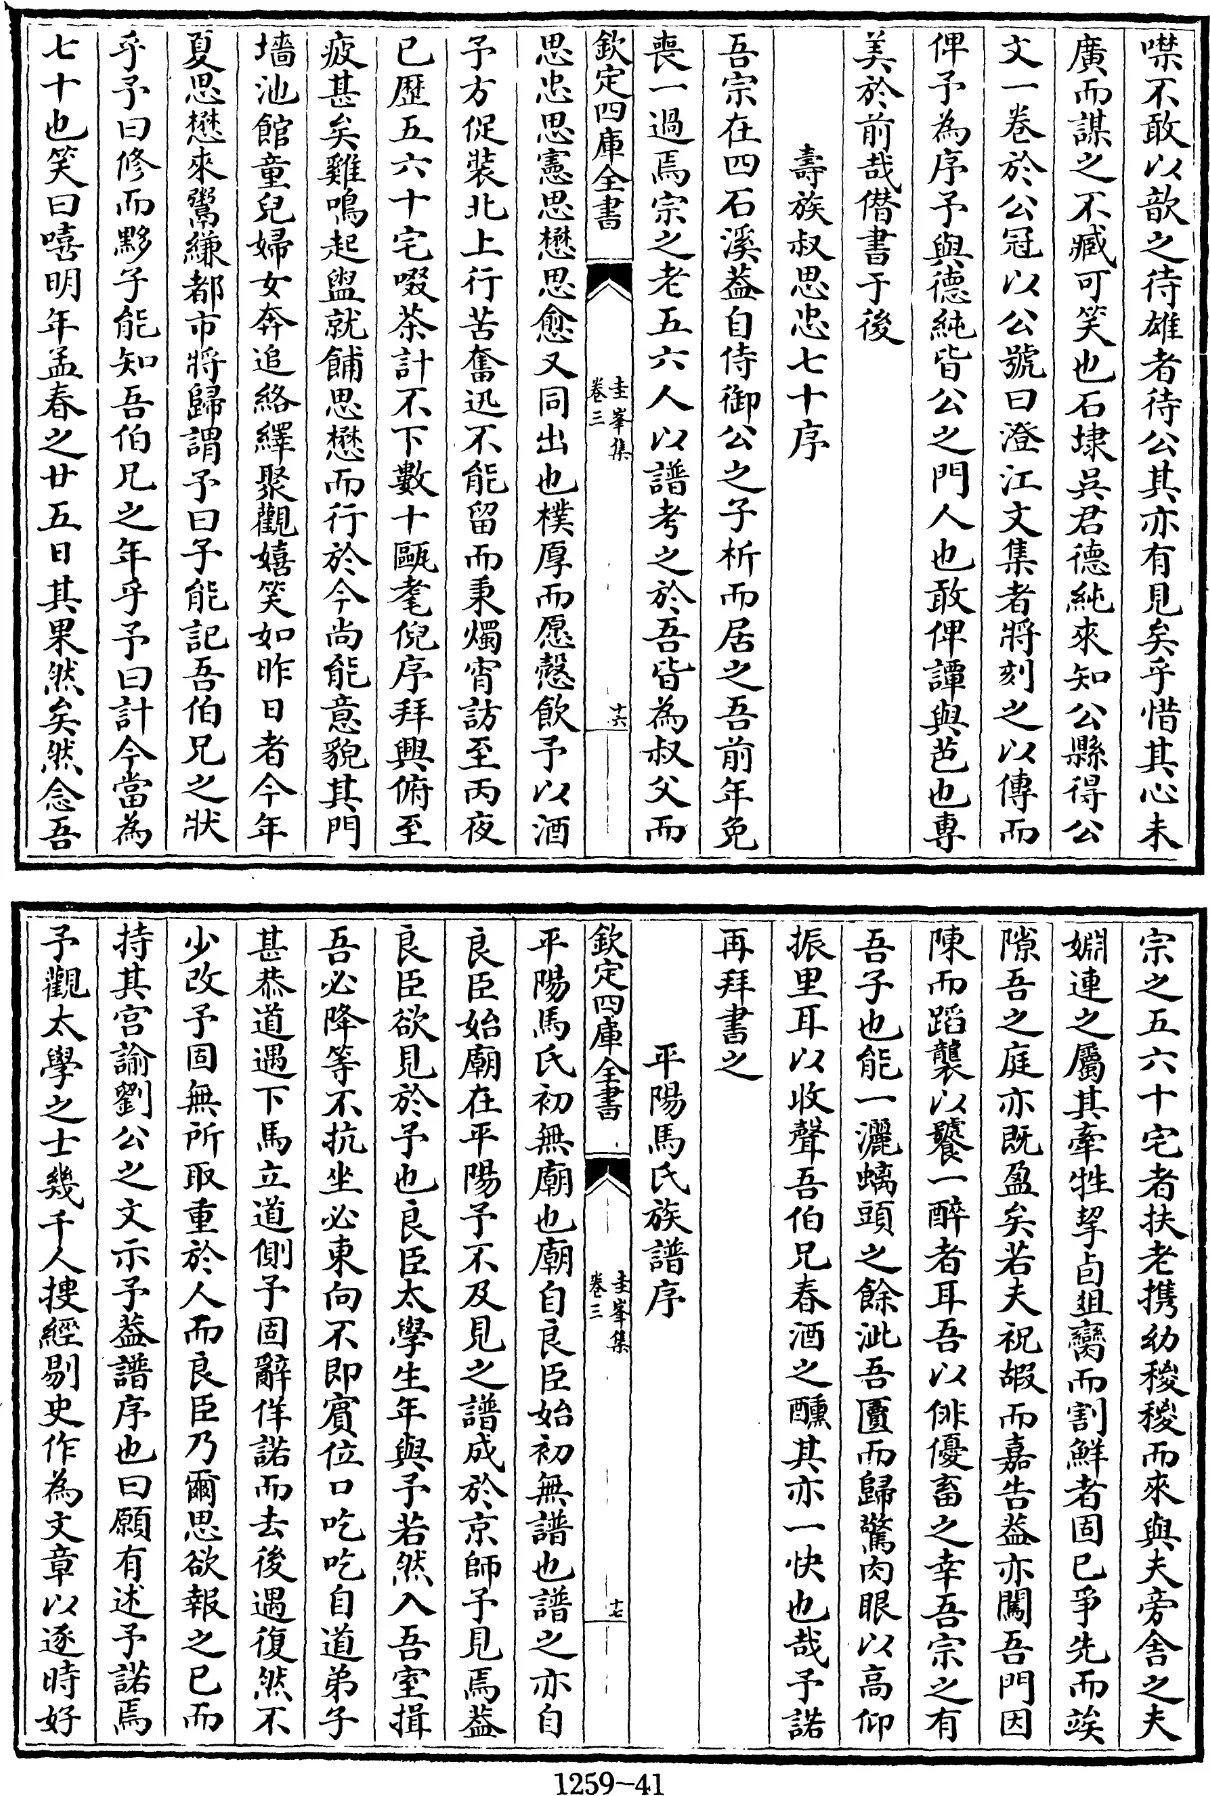 噤不敢以歆之待雄者待公其亦有見矣乎惜其心未
廣而謀之不臧可笑也石埭吳君德純來知公縣得公
文一卷於公冠以公號曰澄江文集者將刻之以傳而
俾予為序予與德純皆公之門人也敢俾譚與芭也專
美於前哉僭書于後
壽族叔思忠七十序
吾宗在四石溪葢自侍御公之子析而居之吾前年免
喪一過焉宗之老五六人以譜考之於吾皆為叔父而
欽定四庫全書
圭峯集
卷三
十六
思忠思憲思懋思愈又同出也樸厚而愿慤飲予以酒
予方促裝北上行苦奮迅不能留而秉燭宵訪至丙夜
已歷五六十宅啜茶計不下數十甌耄倪序拜興俯至
疲甚矣雞鳴起盥就餔思懋而行於今尚能意貌其門
墻池館童兒婦女奔追絡繹聚觀嬉笑如昨日者今年
夏思懋來鬻縑都市將歸謂予曰子能記吾伯兄之狀
乎予曰修而黟子能知吾伯兄之年乎予曰計今當為
七十也笑曰嘻明年孟春之廿五日其果然矣然念吾
宗之五六十宅者扶老携幼稷稷而來與夫旁舍之夫
婣連之屬其牽牲挈卣狙臠而割鮮者固已爭先而竢
隙吾之庭亦既盈矣若夫祝嘏而嘉告葢亦闖吾門因
陳而蹈襲以饕一醉者耳吾以俳優畜之幸吾宗之有
吾子也能一灑螭頭之餘泚吾匱而歸驚肉眼以高仰
振里耳以收聲吾伯兄春酒之醺其亦一快也哉予諾
再拜書之
平陽馬氏族譜序
欽定四庫全書
圭峯集
卷三
十七
平陽馬氏初無廟也廟自良臣始初無譜也譜之亦自
良臣始廟在平陽予不及見之譜成於京師予見焉葢
良臣欲見於予也良臣太學生年與予若然入吾室揖
吾必降等不抗坐必東向不即賓位口吃吃自道弟子
甚恭道遇下馬立道側予固辭佯諾而去後遇復然不
少改予固無所取重於人而良臣乃爾思欲報之已而
持其宫諭劉公之文示予葢譜序也曰願有述予諾焉
予觀太學之士幾千人捜經剔史作為文章以逐時好
1259-41